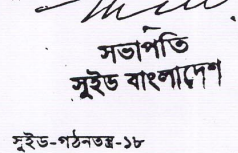 সভাপতি
সুইড বাংলাদেশ
সুইড-গঠনতন্ত্র-১৮